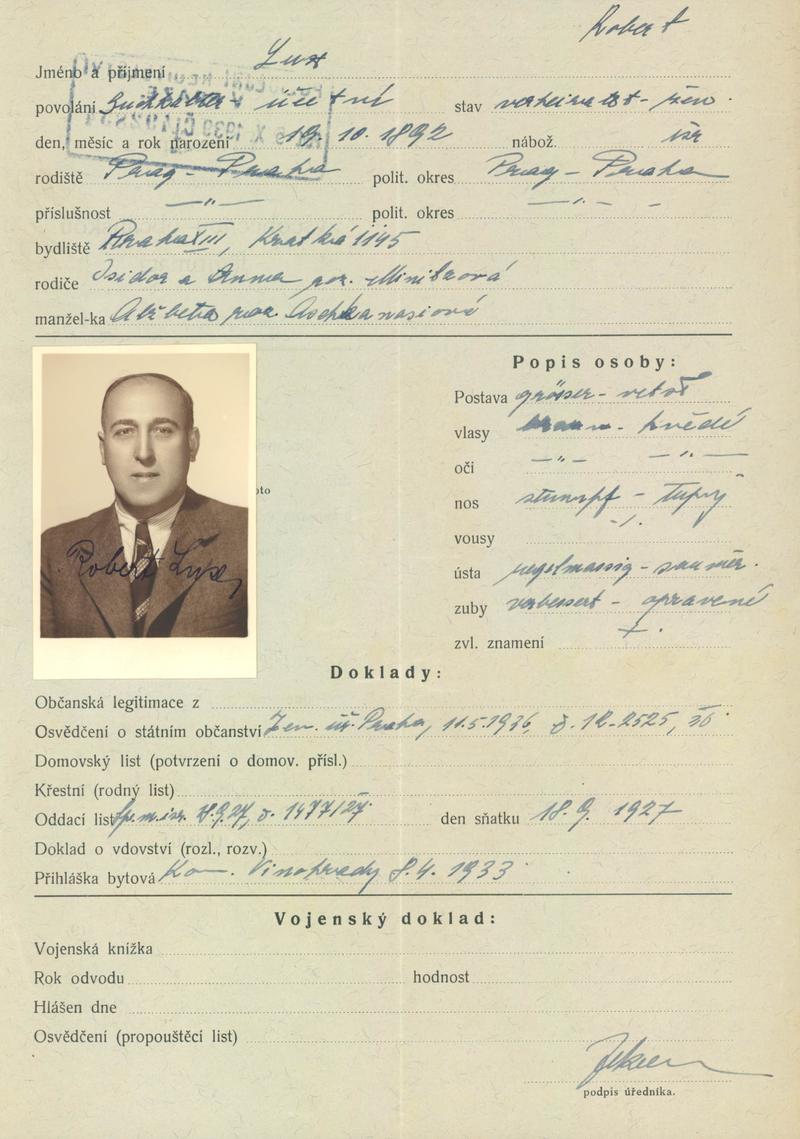 Robert
Jméno a příjmení Lux
povolání Buchhalter - účetní stav verheiratet - žen.
den, měsíc a rok narození 19. 10. 1892 nábož. isr
rodiště Prag - Praha polit. okres Prag - Praha
příslušnost —„— polit. okres —„— —
bydliště Praha XIII, Krátká 1145
rodiče Isidor a Anna roz.
manžel-ka Alžběta roz.
Popis osoby:
Postava grösser - větší
vlasy braun - hnědé
oči —„— —„—
nos stumpf - tupý
vousy -/.
ústa regelmassig - souměr.
zuby verbessert - opravené
zvl. znamení
oto
Robert Lux
Doklady:
Občanská legitimace z
Osvědčení o státním občanství Zem. úř. Praha, 11.5.1936, č. 12-2525,
Domovský list (potvrzení o domov. přísl.)
Křestní (rodný list)
Oddací list č. 1477/27 den sňatku 18. 9. 1927
Doklad o vdovství (rozl., rozv.)
Přihláška bytová Kom. Vinohrady 8. 4. 1933
Vojenský doklad:
Vojenská knížka
Rok odvodu hodnost
Hlášen dne
Osvědčení (propouštěcí list)
podpis úředníka.